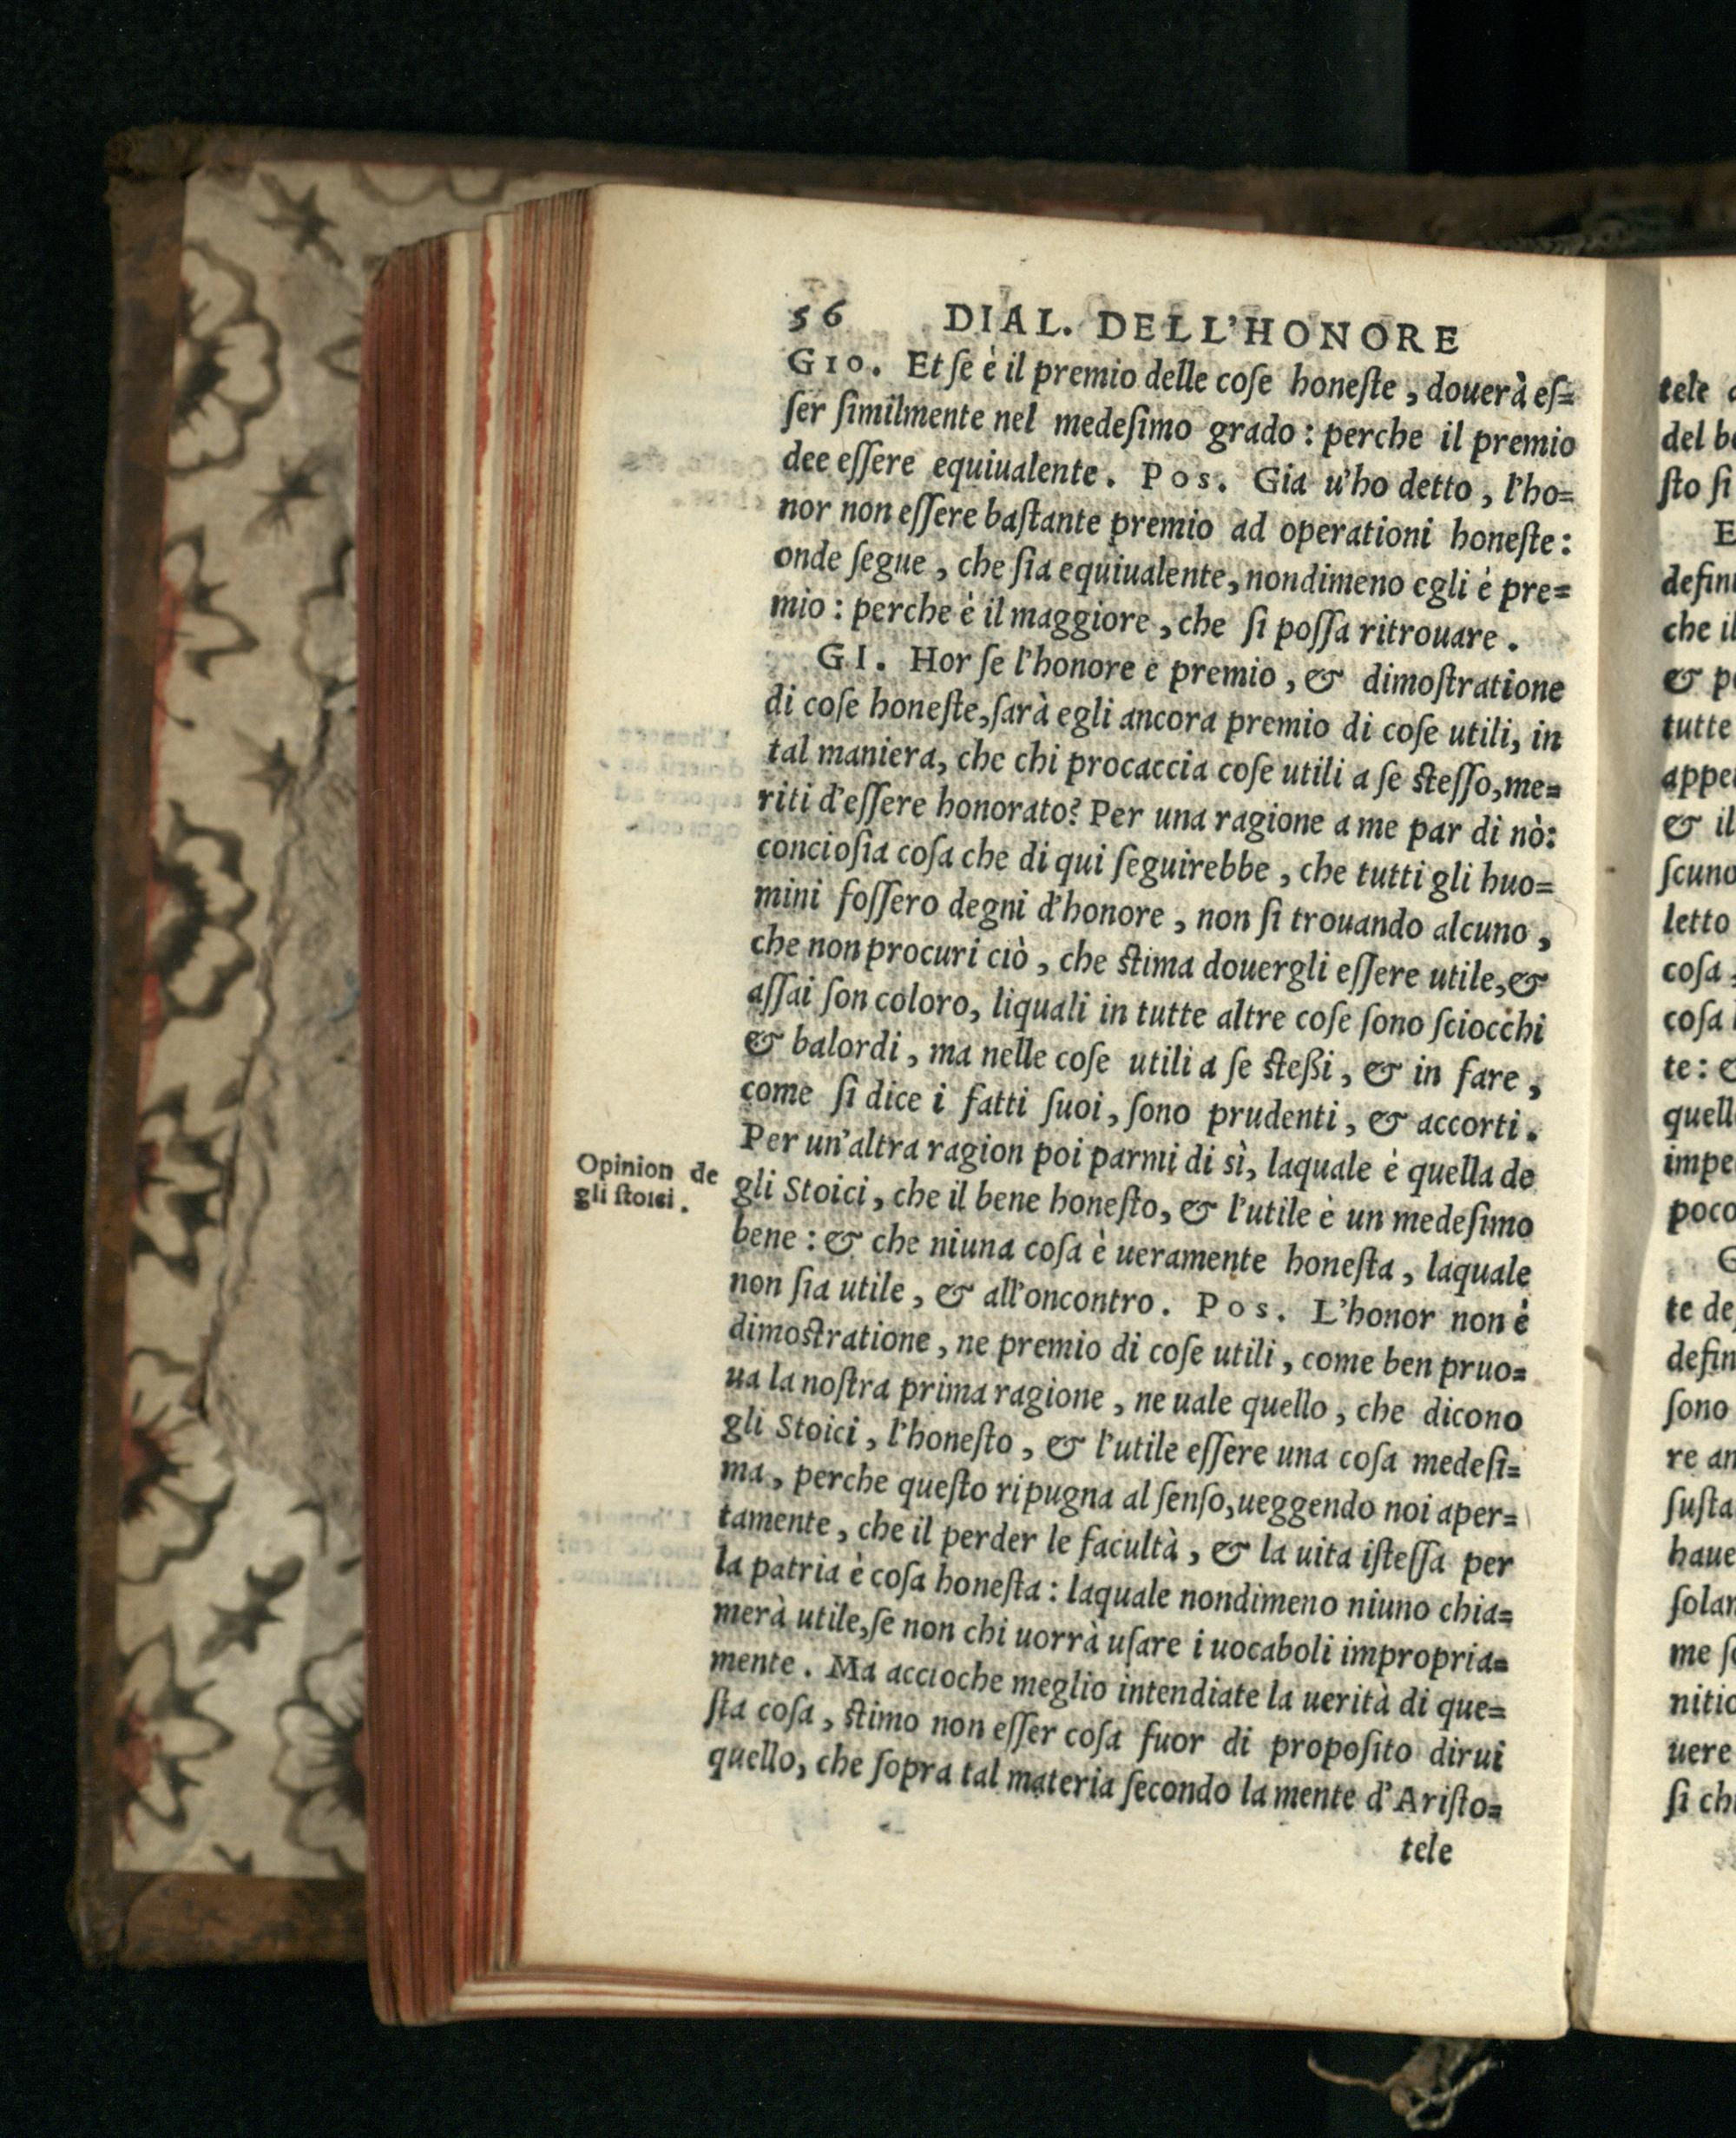 56 DIAL. DELL'HONORE
GIO. Et ſe è il premio delle coſe honeſte, douerà eſ=
ſer ſimilmente nel medeſimo grado: perche il premio
dee eſſere equiualente. Pos. Gia u'ho detto, l'ho=
nor non eſſere baſtante premio ad operationi honeſte:
onde ſegue, che ſia equiualente, nondimeno egli è pre=
mio: perche è il maggiore, che ſi poſſa ritrouare.
GI. Hor ſe l'honore e premio, & dimoſtratione
di coſe honeſte, ſarà egli ancora premio di coſe utili, in
tal maniera, che chi procaccia coſe utili a ſe ſteſſo, me=
riti d'eſſere honorato? Per una ragione a me par di nò:
concioſia coſa che di qui ſeguirebbe, che tutti gli huo=
mini foſſero degni d'honore, non ſi trouando alcuno,
che non procuri ciò, che ſtima douergli eſſere utile, &
aſſai ſon coloro, liquali in tutte altre coſe ſono ſciocchi
& balordi, ma nelle coſe utili a ſe ſteßi, & in fare,
come ſi dice i fatti ſuoi, ſono prudenti, & accorti.
Per un'altra ragion poi parmi di sì, laquale è quella de
Opinion de
gli ſtoici.
gli Stoici, che il bene honeſto, & l'utile è un medeſimo
bene: & che niuna coſa è ueramente honeſta, laquale
non ſia utile, & all'oncontro. Pos. L'honor non è
dimoſtratione, ne premio di coſe utili, come ben pruo=
ua la noſtra prima ragione, ne uale quello, che dicono
gli Stoici, l'honeſto, & l'utile eſſere una coſa medeſi=
ma, perche queſto ripugna al ſenſo, ueggendo noi aper=
tamente, che il perder le facultà, & la uita iſteſſa per
la patria è coſa honeſta: laquale nondimeno niuno chia=
merà utile, ſe non chi uorrà uſare i uocaboli impropria=
mente. Ma accioche meglio intendiate la uerità di que=
ſta coſa, ſtimo non eſſer coſa fuor di propoſito dirui
quello, che ſopra tal materia ſecondo la mente d'Ariſto=
tele
tele
del
ſto ſi
che il
&
tutte
& il
letto
coſa,
coſa
te:
poco
te
ſono
re
me
nitio
uere
ſi